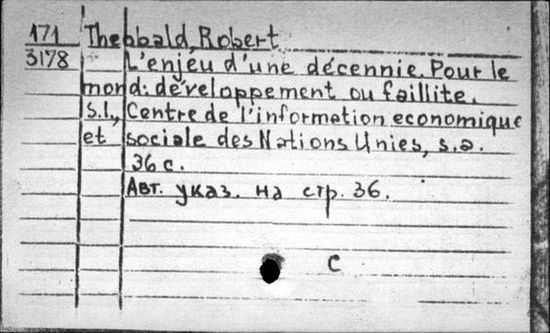 171 Theobald, Robert
3178 L'enjeu d'une décennie. Pour le
mond: développement ou faillite.
S.l., Centre de l'information economique
et sociale des Nations Unies, s.a.
36 c.
Авт. указ. на стр. 36.
C